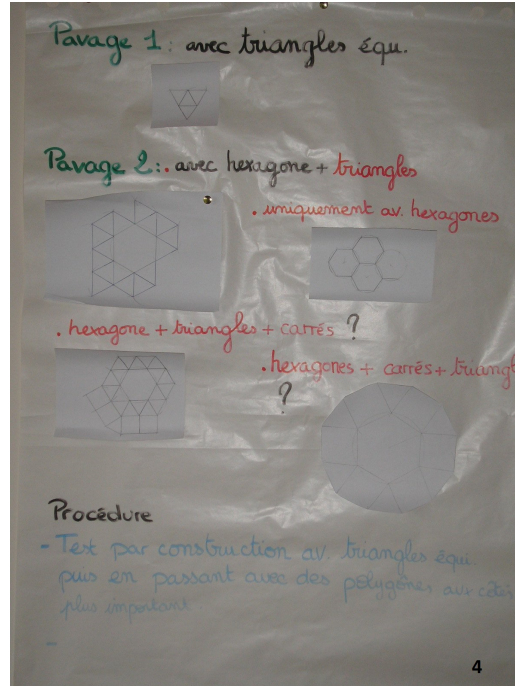 Pavage 1: avec triangles équ.
Pavage 2: . avec hexagone + triangles
. uniquement av. hexagones
. hexagone + triangles + carrés ?
. hexagones + carrés + triangl
?
Procédure
- Test par construction av. triangles équi.
puis en passant avec des polygones aux côtés
plus important
-
4